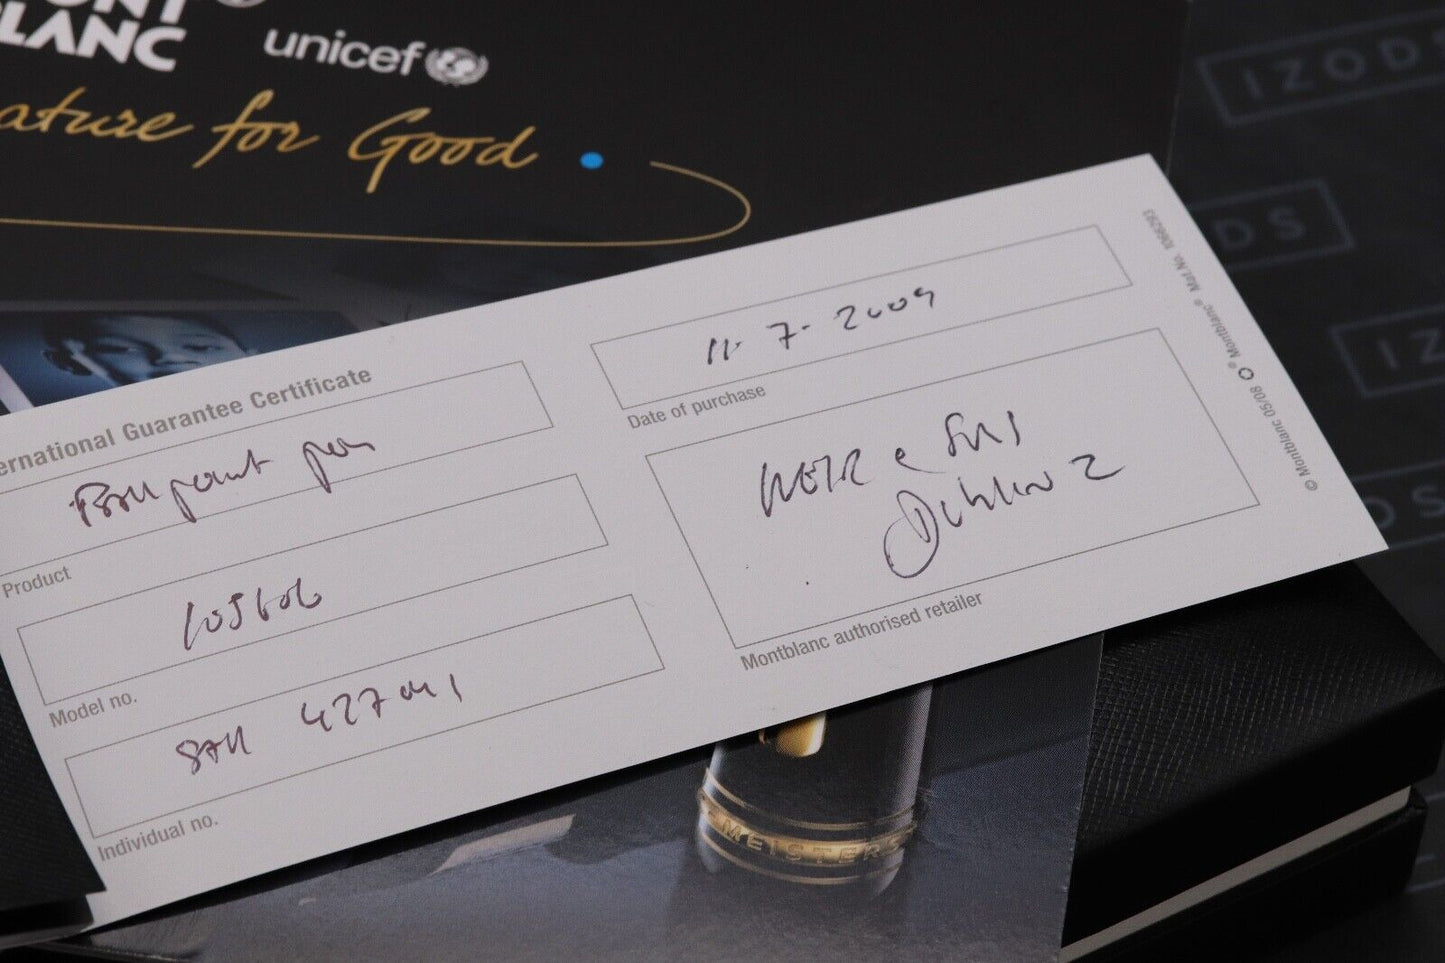 MONT
BLANC
unicef
ature for Good
IZODS
DS
IZ
OS
ernational Guarantee Certificate
Ballpoint pen
Product
105606
Model no.
427
Individual no.
11. 7. 2009
Date of purchase
WEIR & SONS
Dublin 2
Montblanc authorised retailer
© Montblanc 05/08 ® Montblanc® Mat.No. 1066293
MEISTERS